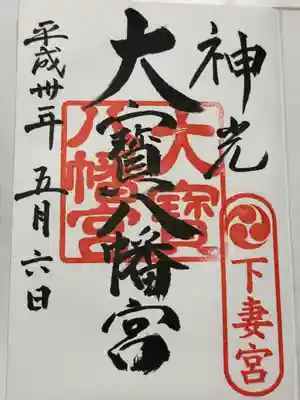 神光
下妻宮
大寶八幡宮
大寶
八幡宮
平成卅年 五月六日